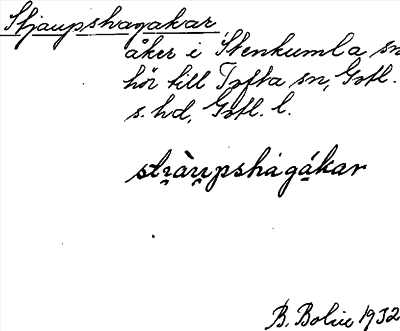 Stjaupshagakar,
åker i Stenkumla sn
hör till Tofta sn, Gotl.
s. hd, Gotl. l.
sti̯àu̯pshágákar
B. Bolin 1932